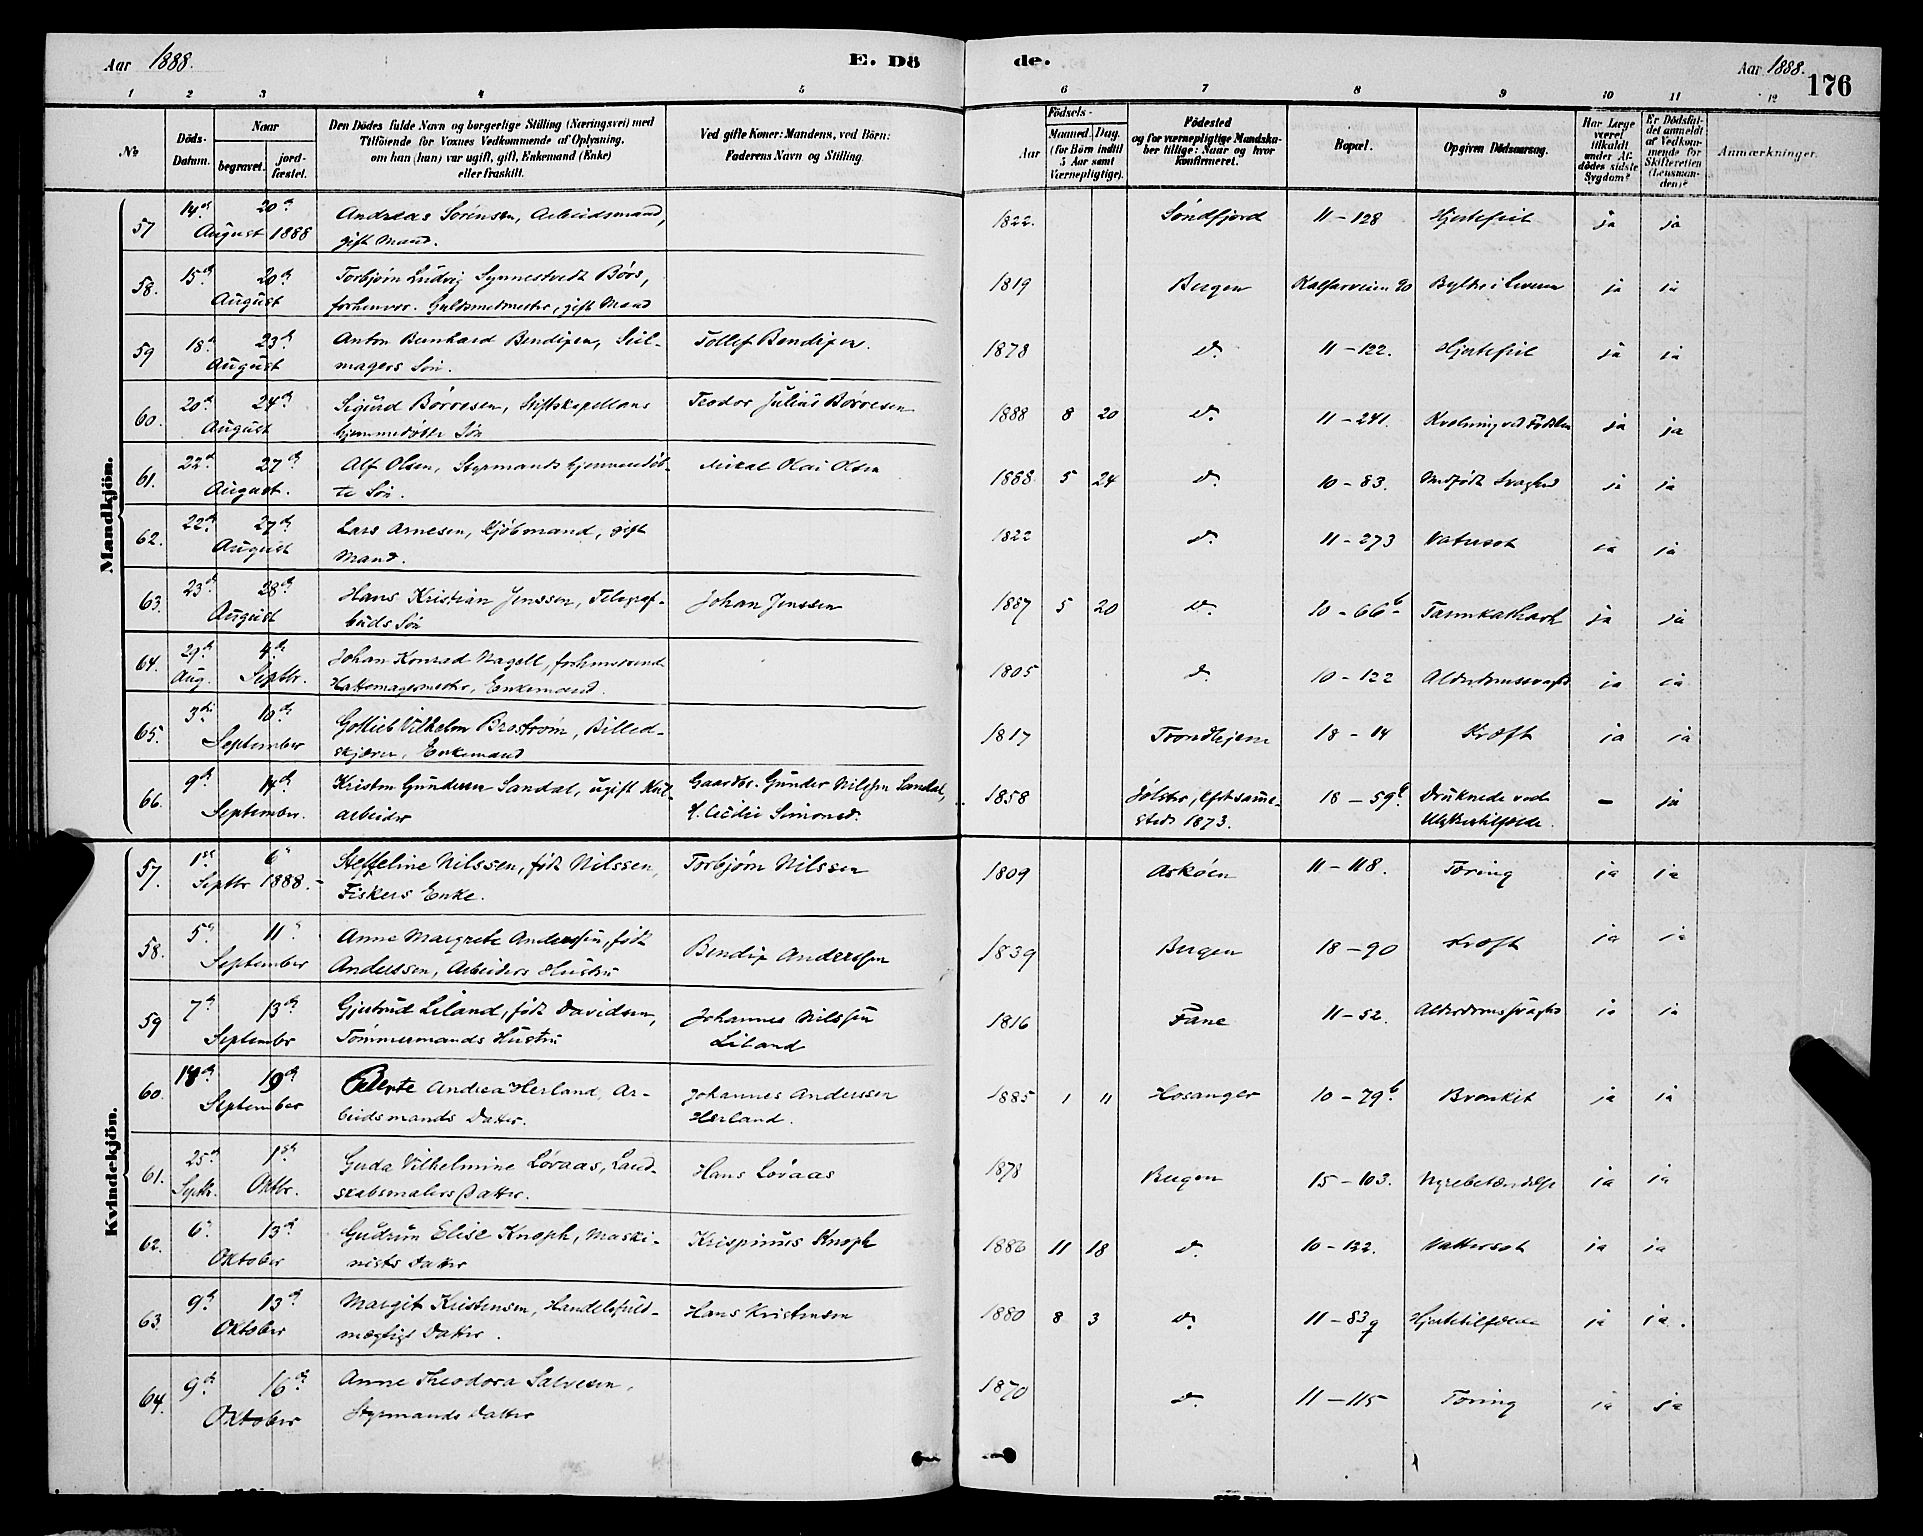 Aar 1888. E. Dö de. Aar 1888. 176
1 2 3 4 5 6 7 8 9 10 11 12
№ Döds-Datum. Naar begravet. jordfæstet. Den Dödes fulde Navn og borgerlige Stilling (Næringsvei) med Tilföiende for Voxnes Vedkommende af Oplysning, om han (hun) var ugift, gift, Enkemand (Enke) eller fraskilt. Ved gifte Koner: Mandens, ved Börn: Faderens Navn og Stilling. Aar Födsels- Maaned. Dag. (for Börn indtil 5 Aar samt Værnepligtige). Födested og for værnepligtige Mandskaber tillige: Naar og hvor konfirmeret. Bopæl. Opgiven Dödsaarsag. Har Læge været tilkaldt under Afdödes sidste Sygdom? Er Dödsfaldet anmeldt af Vedkommende for Skifteretten (Lensmanden)? Anmærkninger.
Mandkjön.
57 14de 20de August 1888 Andreas Sörensen, Arbeidsmand, gift Mand. 1822. Søndfjord 11-128 Hjertefeil ja ja
58. 15de 20de August Torbjørn Ludvig Synnestvedt Børs, forhenvær. Guldsmedmester, gift Mand 1819 Bergen Kalfarveien 20 Bylder i Leveren ja ja
59 18de 23de August Anton Bernhard Bendixen, Seilmagers Søn. Tollef Bendixen. 1878 do. 11-122. Hjertefeil ja ja
60. 20de 24de August Sigurd Börresen, Stiftskapellans hjemmedøbte Søn Teodor Julius Börresen 1888 8 20 do. 11-241. Kvælning ved Fødslen ja ja
61. 22de 27de August. Alf Olsen, Styrmands hjemmedøbte Søn. Mikal Olai Olsen 1888 5 24 do. 10-83. Medfødt Svaghed ja ja
62. 22de 27de August Lars Arnesen, Kjöbmand, gift Mand. 1822 do. 11-273 Vatersot ja ja
63. 23de 28de August Hans Kristian Jenssen, Telegrafbuds Søn Johan Jenssen 1887 5 20 do. 10-66b. Tarmkatharh ja ja
64. 29de Aug. 4de Septbr. Johan Konrad Nagell, forhenværend Hattemagermester, Enkemand. 1805 do. 10-122 Alderdomssvaghd ja ja
65. 3die 10de September Gottlieb Vilhelm Broström, Billedskjærer, Enkemand 1817 Trondhjem 18-14 Kræft ja ja
66. 9de 14de September. Kristen Gundersen Sandal, ugift Kularbeider Gaardbr. Gunder Nilssen Sandal, H. Cecilie Simonsd. 1858 Jølster, kft samesteds 1873. 18-59b. Druknede ved Ulykkestilfælde. - ja
Kvindekjön.
57. 1ste 6te Septbr 1888. Steffeline Nilssen, født Nilssen, Fiskers Enke. Torbjørn Nilssen 1809 Askøen 11-118. Tæring ja ja
58. 5te 11te September Anne Margrete Anderssen, født Anderssen, Arbeiders Hustru Bendix Anderssen 1839 Bergen 18-90 Kræft ja ja
59 7de 13de September Gjertrud Liland, født Davidsen, Tømmermands Hustru Johannes Nilssen Liland 1816 Fane 11-52. Alderdomssvaghd ja ja
60. 14de 19de September Andrea Herland, Arbeidsmands Datter. Johannes Anderssen Herland. 1885 1 11 Hosanger 10-79b. Bronkit ja ja
61. 25de Septbr. 1ste Oktbr. Guda Vilhelmine Løvaas, Landskabsmalers Datter. Hans Løvaas 1878 Bergen 15-103. Nyrebetændelse ja ja
62. 6te 13de Oktober Gudrun Elise Knoph, Maskinists Datter Krispinus Knoph 1886 11 18 do. 10-122. Vattersot ja ja
63. 9de 13de Oktober Margit Kristensen, Handelsfuldmægtigs Datter. Hans Kristensen 1880 8 3 do. 11-83g Hjertetilfælde ja ja.
64. 9de 16de Oktober Anne Theodora Salvesen, Styrmands Datter 1870 do. 11-115 Tæring ja ja